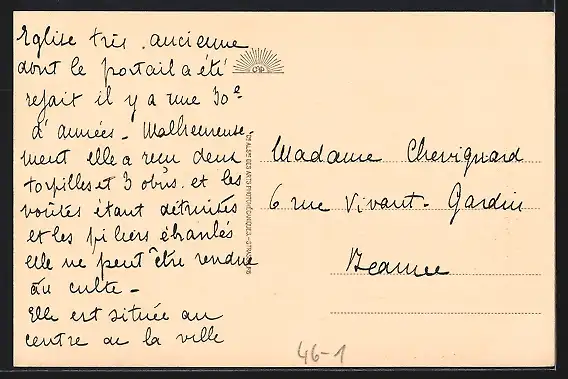 Eglise très ancienne
dont le portail a été
refait il y a une 30e
d'années - Malheureuse-
ment elle a reçu deux
torpilles et 3 obus. et les
voûtes étant détruites
et les piliers ébranlés
elle ne peut être rendue
au culte -
Elle est située au
centre de la ville
CAP
Madame Chevignard
6 rue Vivant-Gardin
Beaune
46-1